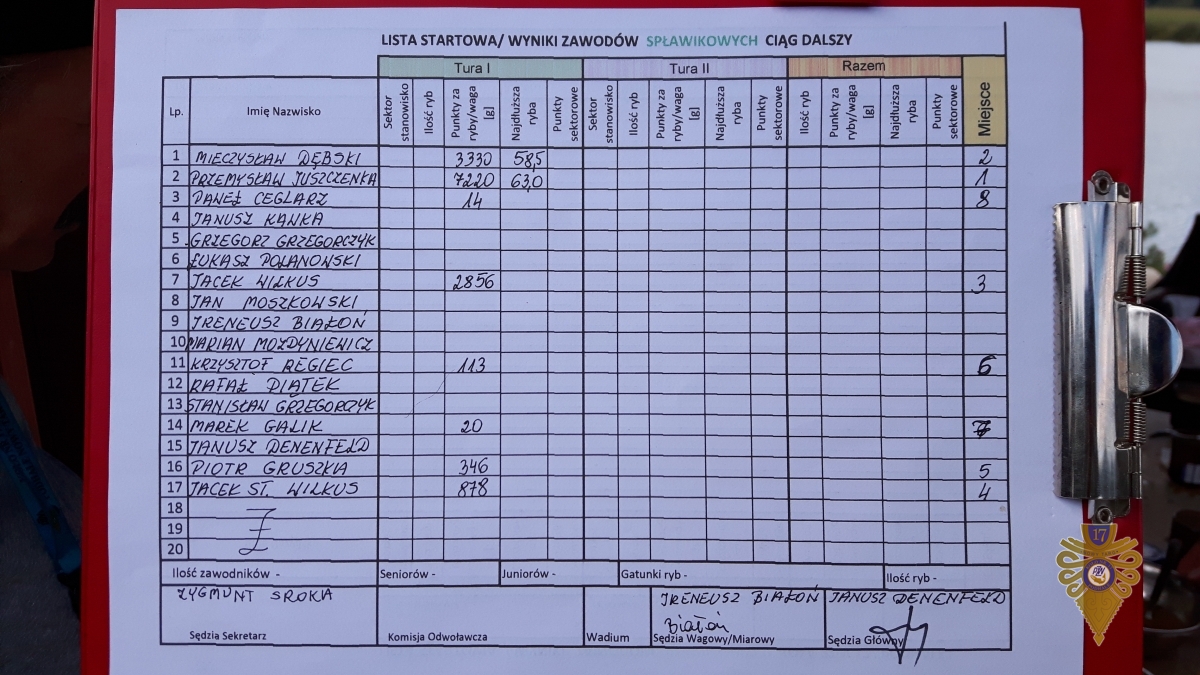 LISTA STARTOWA/ WYNIKI ZAWODÓW SPŁAWIKOWYCH CIĄG DALSZY
Tura I Tura II Razem
Lp. Imię Nazwisko Sektor stanowisko Ilość ryb Punkty za ryby/waga [g] Najdłuższa ryba Punkty sektorowe Sektor stanowisko Ilość ryb Punkty za ryby/waga [g] Najdłuższa ryba Punkty sektorowe Ilość ryb Punkty za ryby/waga [g] Najdłuższa ryba Punkty sektorowe Miejsce
1 MIECZYSŁAW DĘBSKI 3330 58,5 2
2 PRZEMYSŁAW JUSZCZENKA 7220 63,0 1
3 PAWEŁ CEGLARZ 14 8
4 JANUSZ KAŃKA
5 GRZEGORZ GRZEGORCZYK
6 ŁUKASZ POLANOWSKI
7 JACEK WILKUS 2856 3
8 JAN MOSZKOWSKI
9 IRENEUSZ BIAŁOŃ
10 MARIAN MOZDYNIEWICZ
11 KRZYSZTOF REGIEC 113 6
12 RAFAŁ PIĄTEK
13 STANISŁAW GRZEGORCZYK
14 MAREK GALIK 20 7
15 JANUSZ DENENFELD
16 PIOTR GRUSZKA 346 5
17 JACEK ST. WILKUS 878 4
18
19
20
Ilość zawodników - Seniorów - Juniorów - Gatunki ryb - Ilość ryb -
ZYGMUNT SROKA IRENEUSZ BIAŁOŃ JANUSZ DENENFELD
Białoń
Sędzia Sekretarz Komisja Odwoławcza Wadium Sędzia Wagowy/Miarowy Sędzia Główny
17
PZW